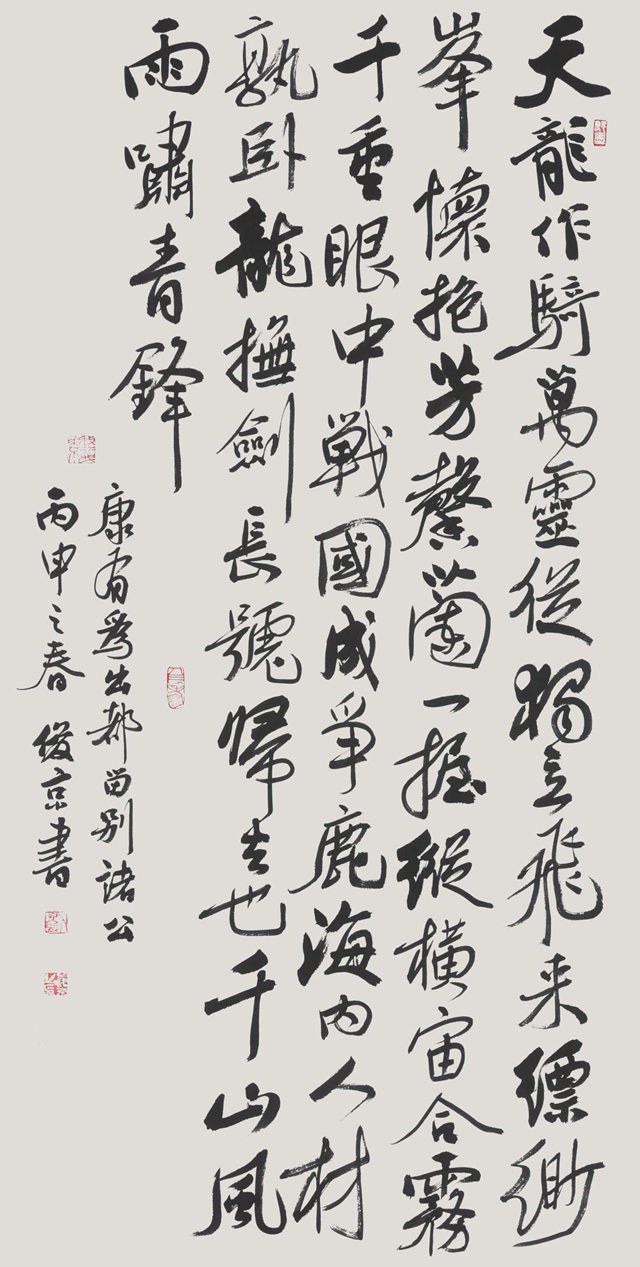 天龍作騎萬靈從獨立飛来縹緲
峯懷抱芳馨蘭一握縱橫宙合霧
千重眼中戰國成爭鹿海内人材
孰卧龍撫劍長號歸去也千山風
雨嘯青鋒
康有為出都留別諸公
丙申之春 俊京書